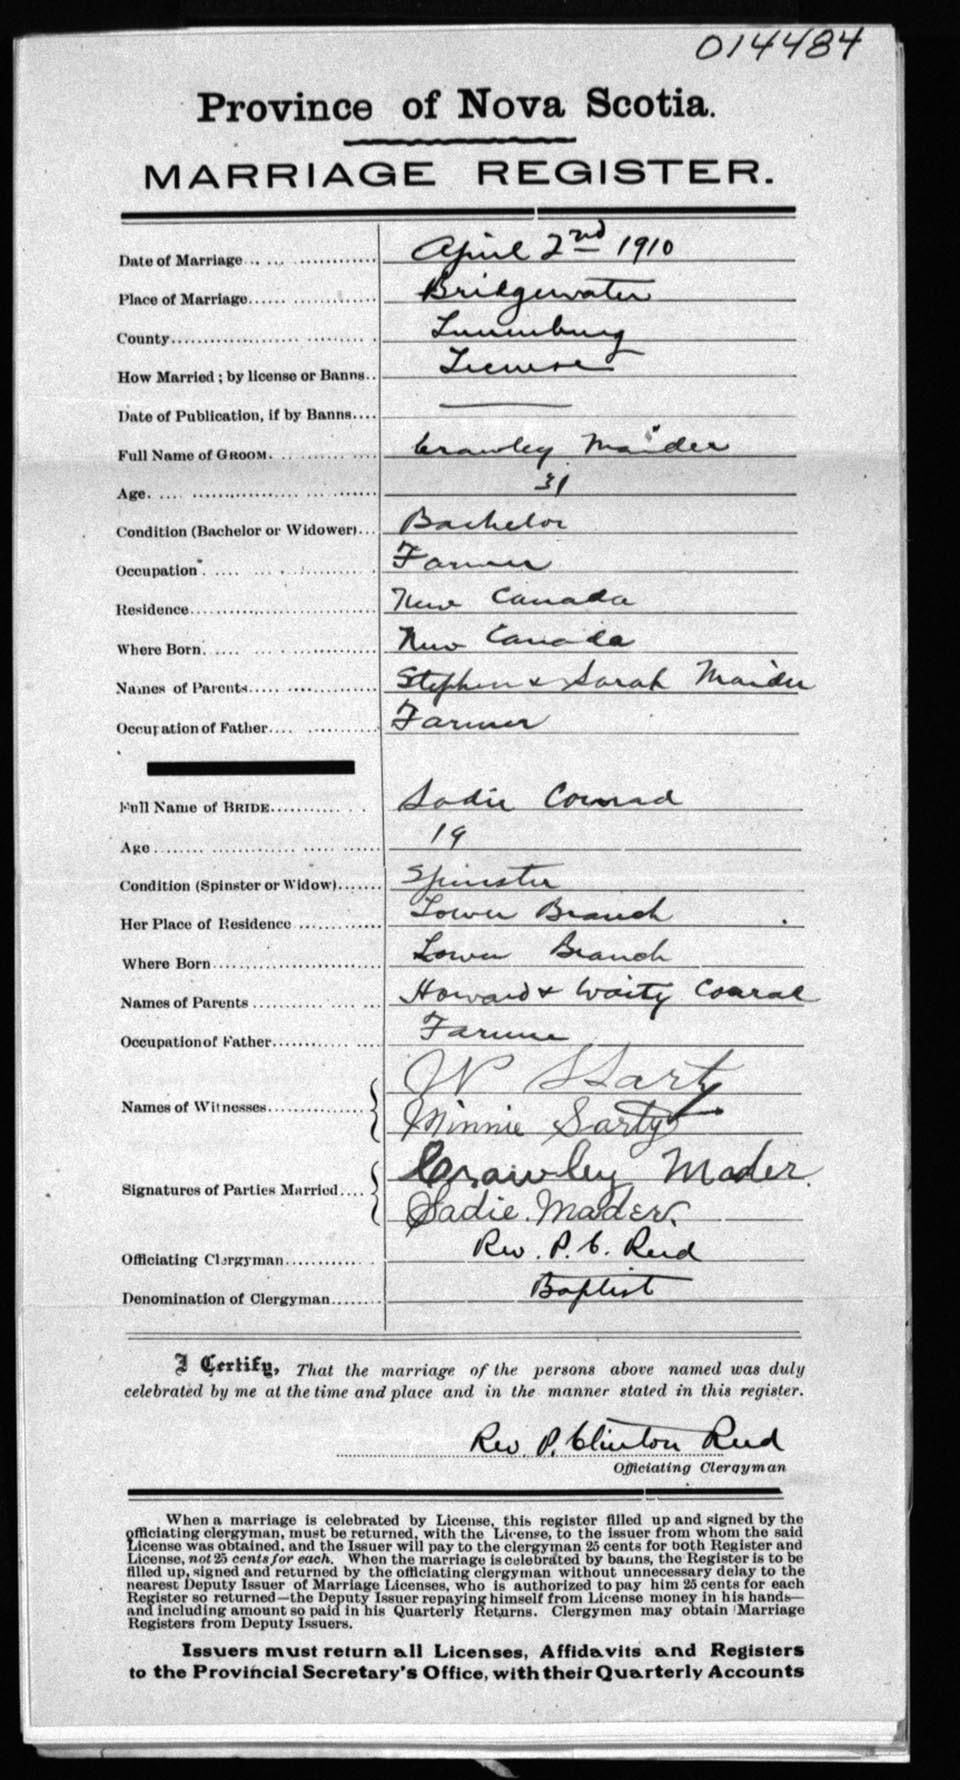 014484
Province of Nova Scotia.
MARRIAGE REGISTER.
Date of Marriage... April 2nd 1910
Place of Marriage... Bridgewater
County... Lunenburg
How Married; by license or Banns.. License
Date of Publication, if by Banns.... —
Full Name of GROOM. Crawley Maider
Age. 31
Condition (Bachelor or Widower)... Bachelor
Occupation. Farmer
Residence... New Canada
Where Born. New Canada
Names of Parents... Stephen & Sarah Maider
Occupation of Father.... Farmer
Full Name of BRIDE... Sadie Conrad
Age... 19
Condition (Spinster or Widow)... Spinster
Her Place of Residence... Lower Branch
Where Born... Lower Branch
Names of Parents... Howard & Waity Conrad
Occupation of Father... Farmer
W Sarty
Names of Witnesses...
Minnie Sarty
Crawley Mader.
Signatures of Parties Married....
Sadie Mader.
Officiating Clergyman... Rev. P. C. Reed
Denomination of Clergyman... Baptist
I Certify, That the marriage of the persons above named was duly
celebrated by me at the time and place and in the manner stated in this register.
Rev. P. Clinton Reed
Officiating Clergyman
When a marriage is celebrated by License, this register filled up and signed by the
officiating clergyman, must be returned, with the License, to the issuer from whom the said
License was obtained, and the Issuer will pay to the clergyman 25 cents for both Register and
License, not 25 cents for each. When the marriage is celebrated by banns, the Register is to be
filled up, signed and returned by the officiating clergyman without unnecessary delay to the
nearest Deputy Issuer of Marriage Licenses, who is authorized to pay him 25 cents for each
Register so returned—the Deputy Issuer repaying himself from License money in his hands—
and including amount so paid in his Quarterly Returns. Clergymen may obtain Marriage
Registers from Deputy Issuers.
Issuers must return all Licenses, Affidavits and Registers
to the Provincial Secretary's Office, with their Quarterly Accounts